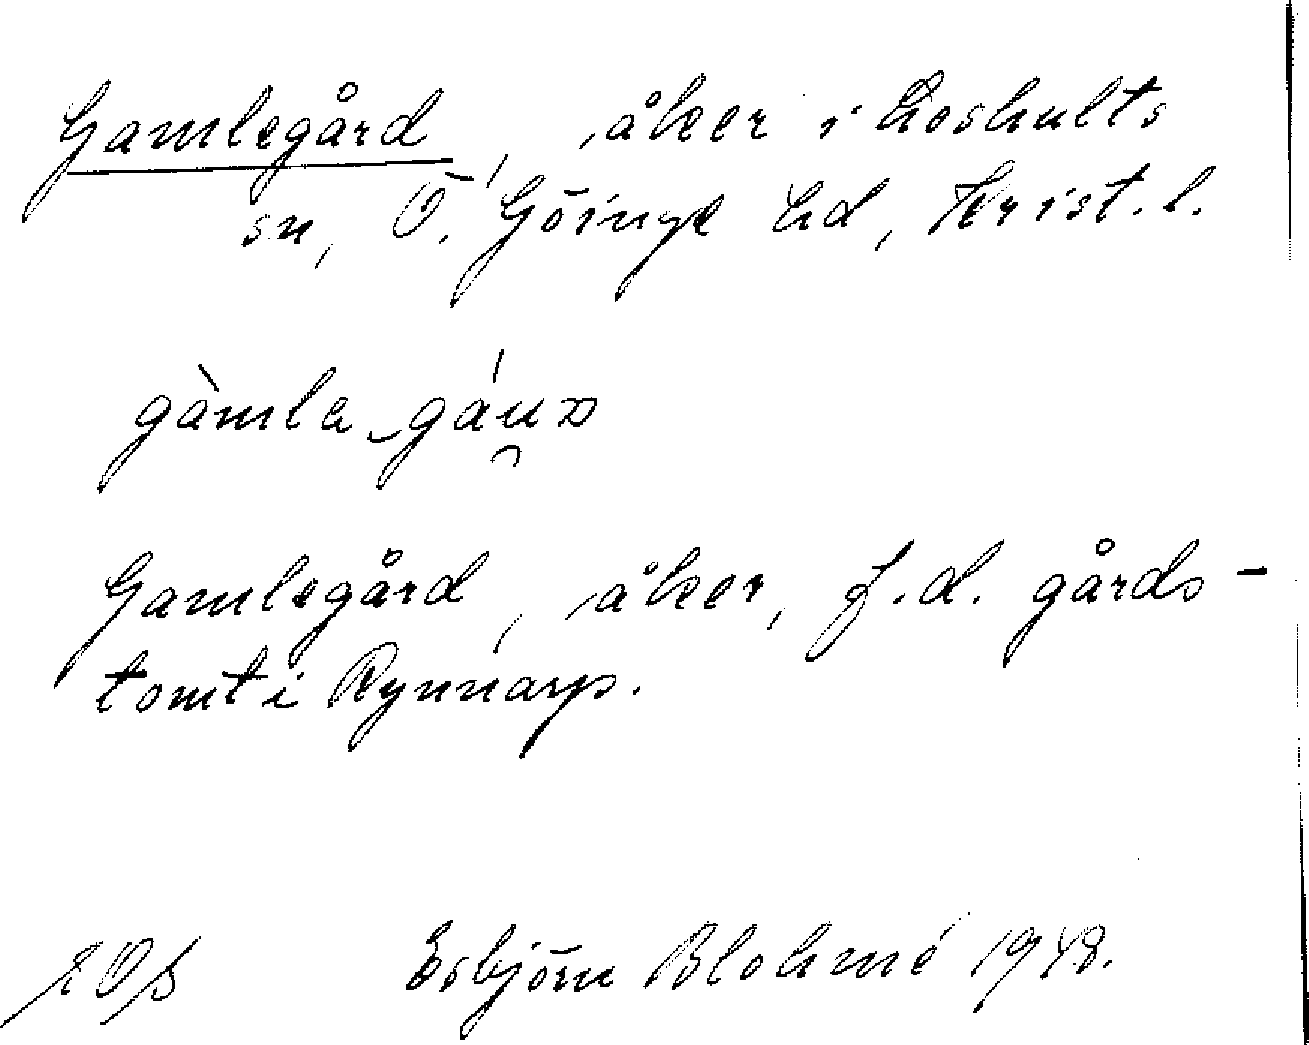 Gamlegård, åker i Loshults
sn, Ö. Göinge hd, Krist. l.
gàmla-gáu̯ꝺ
Gamlegård, åker, f.d. gårds-
tomt i Rynnarp.
Esbjörn Blohmé 1948.